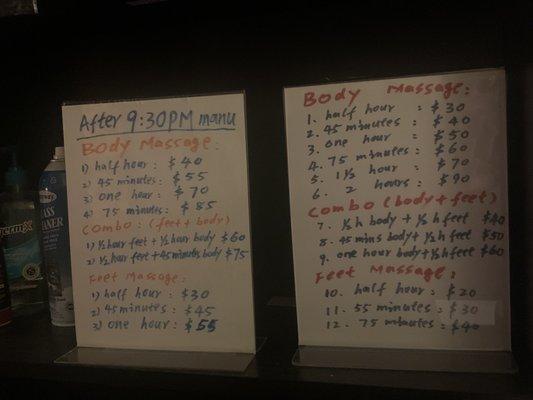 After 9:30PM manu
Body Massage:
1) half hour: $40
2) 45 minutes: $55
3) one hour: $70
4) 75 minutes: $85
Combo: (feet + body)
1) ½ hour feet + ½ hour body $60
2) ½ hour feet + 45 minutes body $75
Feet Massage:
1) half hour: $30
2) 45 minutes: $45
3) one hour: $55
Body Massage:
1. half hour : $30
2. 45 minutes : $40
3. one hour : $50
4. 75 minutes : $60
5. 1½ hour : $70
6. 2 hours : $90
Combo (body + feet)
7. ½ h body + ½ h feet $40
8. 45 mins body + ½ h feet $50
9. one hour body + ½ h feet $60
Feet Massage:
10. half hour : $20
11. 55 minutes : $30
12. 75 minutes : $40